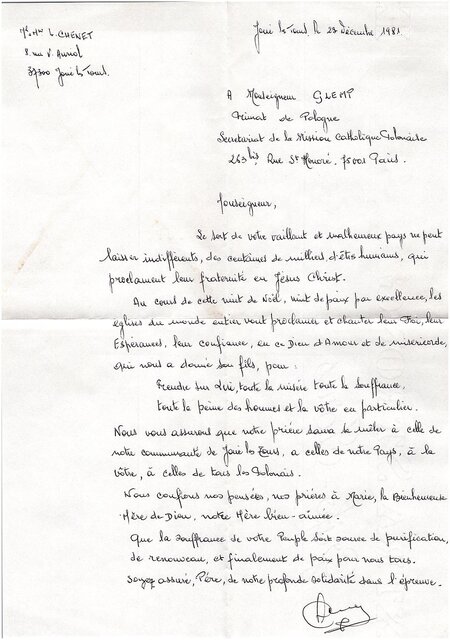 Mr. Mme L. CHENET
8 rue V. Auriol
37300 Joué les Tours.
Joué les Tours le 23 Décembre 1981.
A Monseigneur GLEMP
Primat de Pologne
Secrétariat de la Mission Catholique Polonaise
263 bis Rue St Honoré, 75001 Paris.
Monseigneur,
Le sort de votre vaillant et malheureux pays ne peut
laisser indifférents, des centaines de milliers d'êtres humains, qui
proclament leur fraternité en Jésus Christ.
Au cours de cette nuit de Noël, nuit de paix par excellence, les
églises du monde entier vont proclamer et chanter leur Foi, leur
Espérances, leur confiance, en ce Dieu d'Amour et de miséricorde,
qui nous a donné son fils, pour :
Prendre sur Lui, toute la misère toute la souffrance,
toute la peine des hommes et la vôtre en particulier.
Nous vous assurons que notre prière saura se mêler à celle de
notre communauté de Joué les Tours, a celles de notre Pays, à la
vôtre, à celles de tous les Polonais.
Nous confions nos pensées, nos prières à Marie, la Bienheureuse
Mère de Dieu, notre Mère bien-aimée.
Que la souffrance de votre Peuple soit source de purification,
de renouveau, et finalement de paix pour nous tous.
Soyez assuré, Père, de notre profonde solidarité dans l'épreuve.